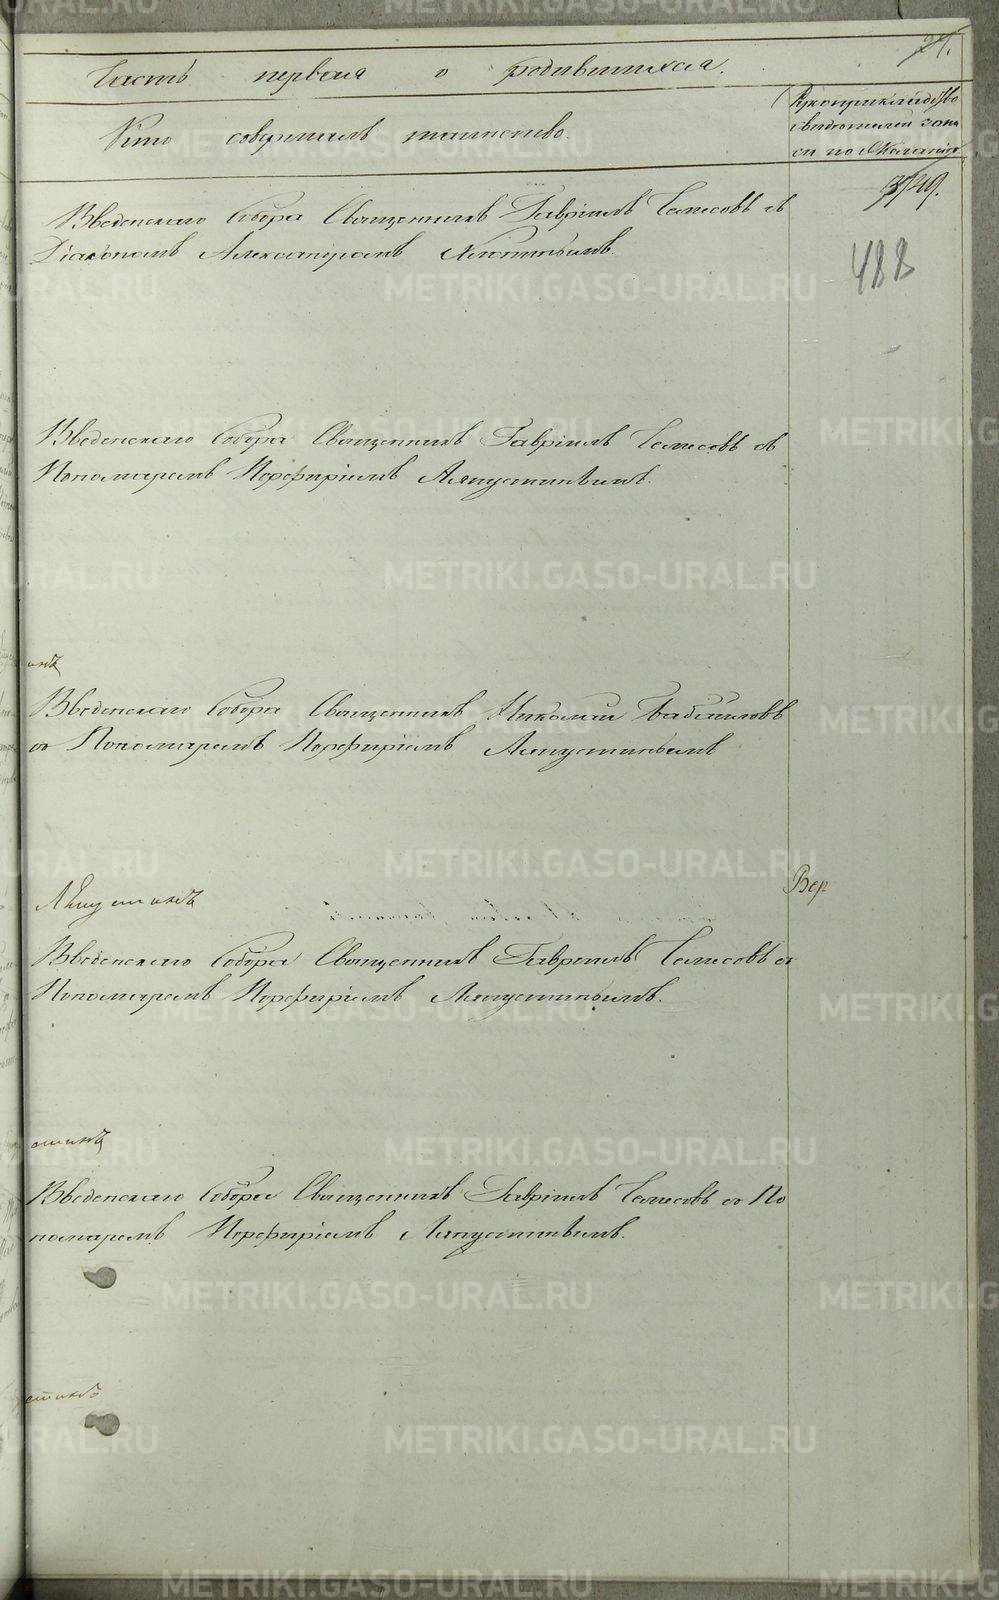 24.
Часть первая о родившихся.
Кто совершалъ таинство.
Рукоприкладство
свидетелей запи
си по желанiю
3/49.
488
Введенскаго Собора Священникъ Гаврiилъ Челесовъ съ
Дiакономъ Александромъ
Введенскаго Собора Священникъ Гаврiилъ Челесовъ съ
Пономаремъ Порфирiемъ Ляпустинымъ.
Введенскаго Собора Священникъ Николай
со Пономаремъ Порфирiемъ Ляпустинымъ
Ляпустинъ
Вер
Введенскаго Собора Священникъ Гаврiилъ Челесовъ съ
Пономаремъ Порфирiемъ Ляпустинымъ.
Введенскаго Собора Священникъ Гаврiилъ Челесовъ со По
номаремъ Порфирiемъ Ляпустинымъ.
METRIKI.GASO-URAL.RU